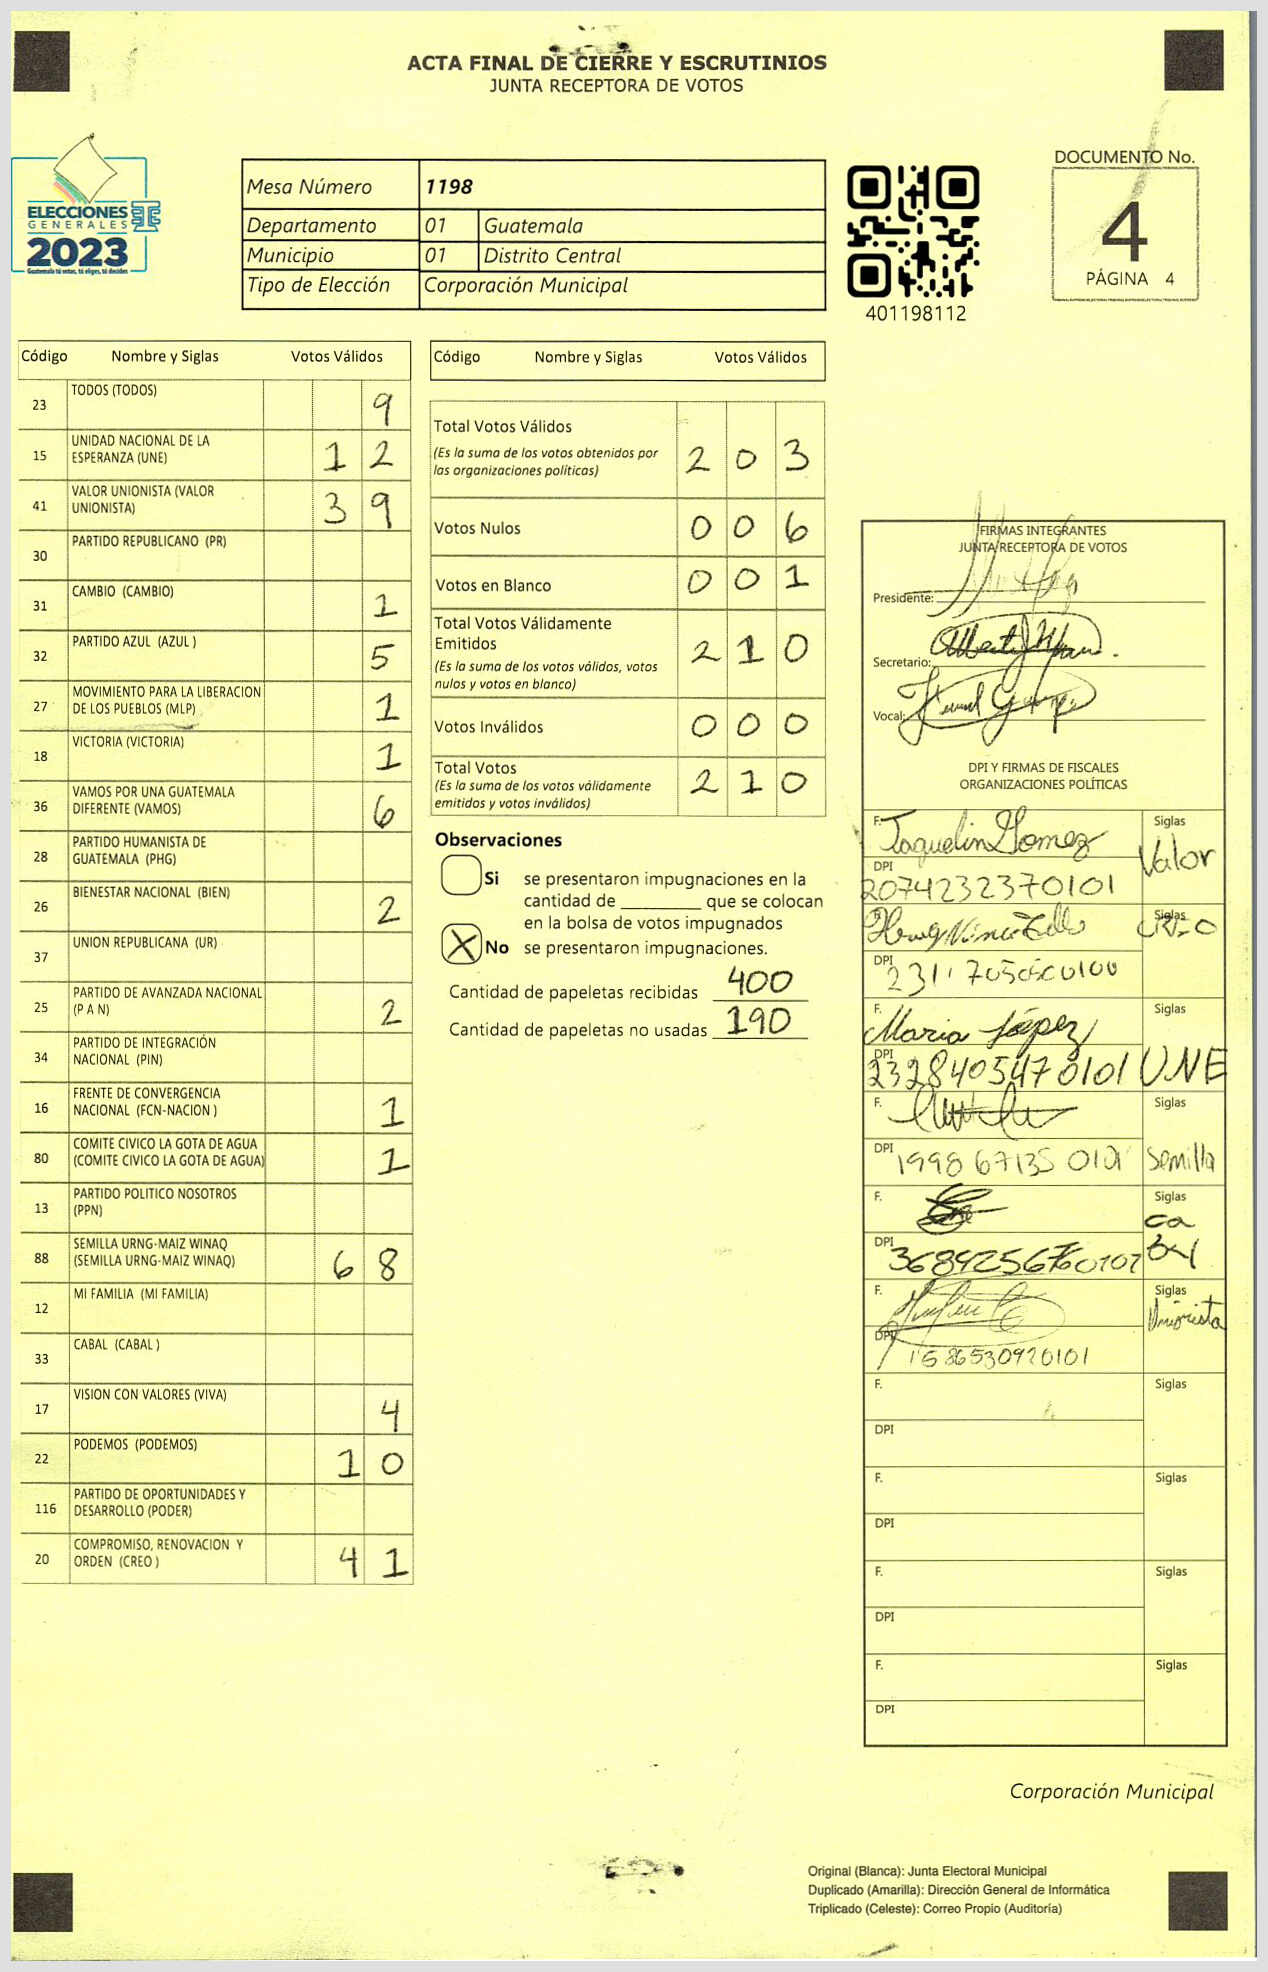 ACTA FINAL DE CIERRE Y ESCRUTINIOS
JUNTA RECEPTORA DE VOTOS
ELECCIONES
GENERALES
2023
Guatemala tú votas, tú eliges, tú decides
Mesa Número 1198
Departamento 01 Guatemala
Municipio 01 Distrito Central
Tipo de Elección Corporación Municipal
401198112
DOCUMENTO No.
4
PÁGINA 4
Código Nombre y Siglas Votos Válidos
23 TODOS (TODOS) 9
15 UNIDAD NACIONAL DE LA
ESPERANZA (UNE) 12
41 VALOR UNIONISTA (VALOR
UNIONISTA) 39
30 PARTIDO REPUBLICANO (PR)
31 CAMBIO (CAMBIO) 1
32 PARTIDO AZUL (AZUL ) 5
27 MOVIMIENTO PARA LA LIBERACION
DE LOS PUEBLOS (MLP) 1
18 VICTORIA (VICTORIA) 1
36 VAMOS POR UNA GUATEMALA
DIFERENTE (VAMOS) 6
28 PARTIDO HUMANISTA DE
GUATEMALA (PHG)
26 BIENESTAR NACIONAL (BIEN) 2
37 UNION REPUBLICANA (UR)
25 PARTIDO DE AVANZADA NACIONAL
(P A N) 2
34 PARTIDO DE INTEGRACIÓN
NACIONAL (PIN)
16 FRENTE DE CONVERGENCIA
NACIONAL (FCN-NACION ) 1
80 COMITE CIVICO LA GOTA DE AGUA
(COMITE CIVICO LA GOTA DE AGUA) 1
13 PARTIDO POLITICO NOSOTROS
(PPN)
88 SEMILLA URNG-MAIZ WINAQ
(SEMILLA URNG-MAIZ WINAQ) 68
12 MI FAMILIA (MI FAMILIA)
33 CABAL (CABAL )
17 VISION CON VALORES (VIVA) 4
22 PODEMOS (PODEMOS) 10
116 PARTIDO DE OPORTUNIDADES Y
DESARROLLO (PODER)
20 COMPROMISO, RENOVACION Y
ORDEN (CREO ) 41
Código Nombre y Siglas Votos Válidos
Total Votos Válidos
(Es la suma de los votos obtenidos por
las organizaciones politicas) 203
Votos Nulos 006
Votos en Blanco 001
Total Votos Válidamente
Emitidos 210
(Es la suma de los votos válidos, votos
nulos y votos en blanco)
Votos Inválidos 000
Total Votos 210
(Es la suma de los votos válidamente
emitidos y votos inválidos)
Observaciones
Si se presentaron impugnaciones en la
cantidad de ________ que se colocan
en la bolsa de votos impugnados
X No se presentaron impugnaciones.
Cantidad de papeletas recibidas 400
Cantidad de papeletas no usadas 190
FIRMAS INTEGRANTES
JUNTA RECEPTORA DE VOTOS
Presidente:
Secretario:
Vocal:
DPI Y FIRMAS DE FISCALES
ORGANIZACIONES POLÍTICAS
F. Jaquelin Gomez Siglas Valor
DPI 2074232370101
F. Siglas CREO
DPI
F. Maria López Siglas UNE
DPI 2328405470101
F. Siglas Semilla
DPI 1998 67135 0101
F. Siglas
DPI
F. Siglas Unionista
DPI 1586530920101
F. Siglas
DPI
F. Siglas
DPI
F. Siglas
DPI
F. Siglas
DPI
Corporación Municipal
Original (Blanca): Junta Electoral Municipal
Duplicado (Amarilla): Dirección General de Informática
Triplicado (Celeste): Correo Propio (Auditoría)